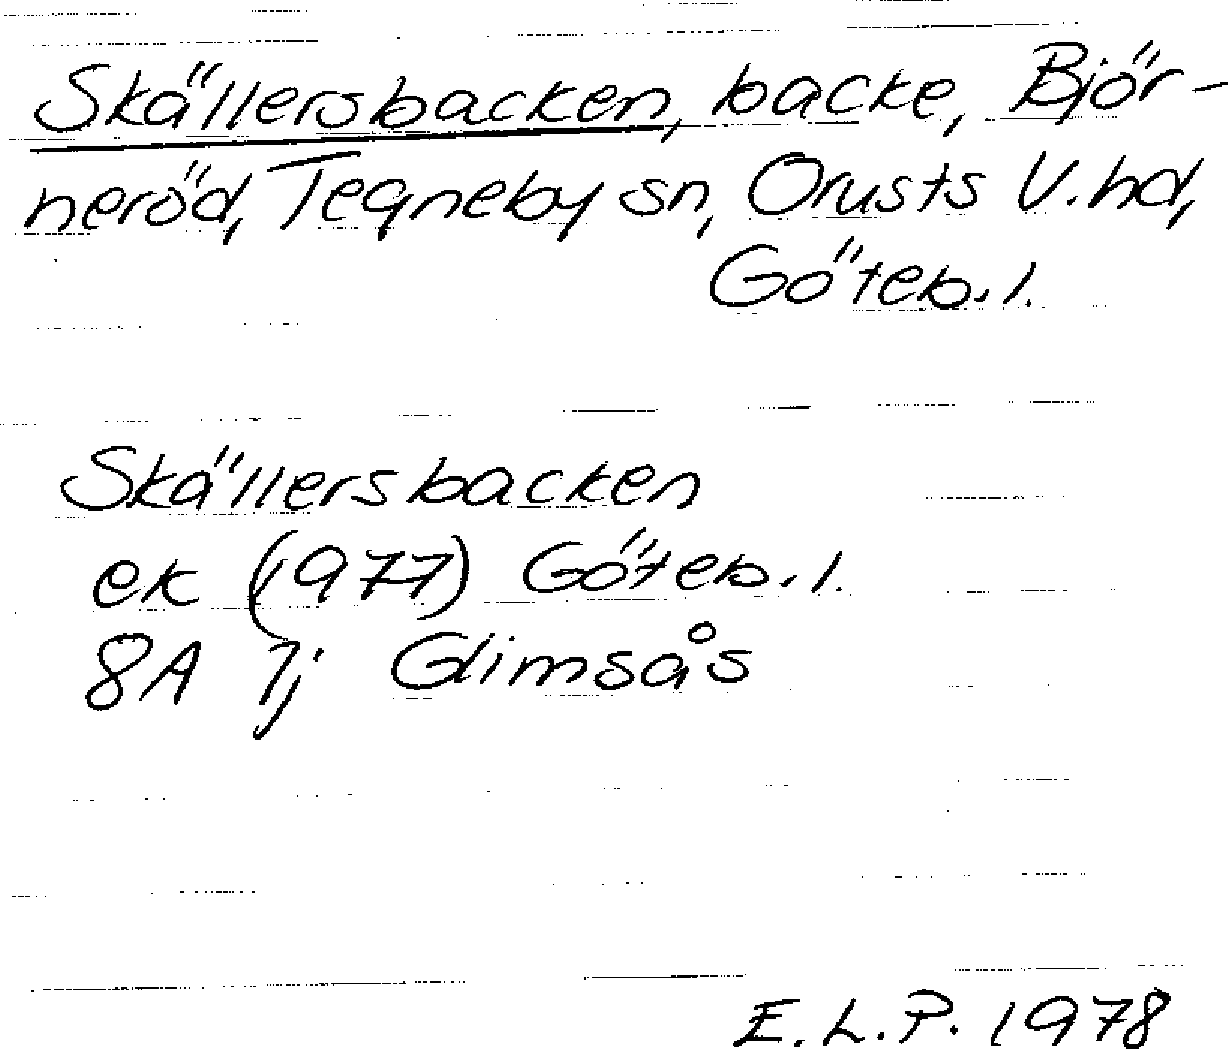 Skällersbacken, backe, Björ-
neröd, Tegneby sn, Orusts V. hd,
Göteb. l.
Skällersbacken
ek (1977) Göteb. l.
8A 7j Glimsås
E. L. P. 1978